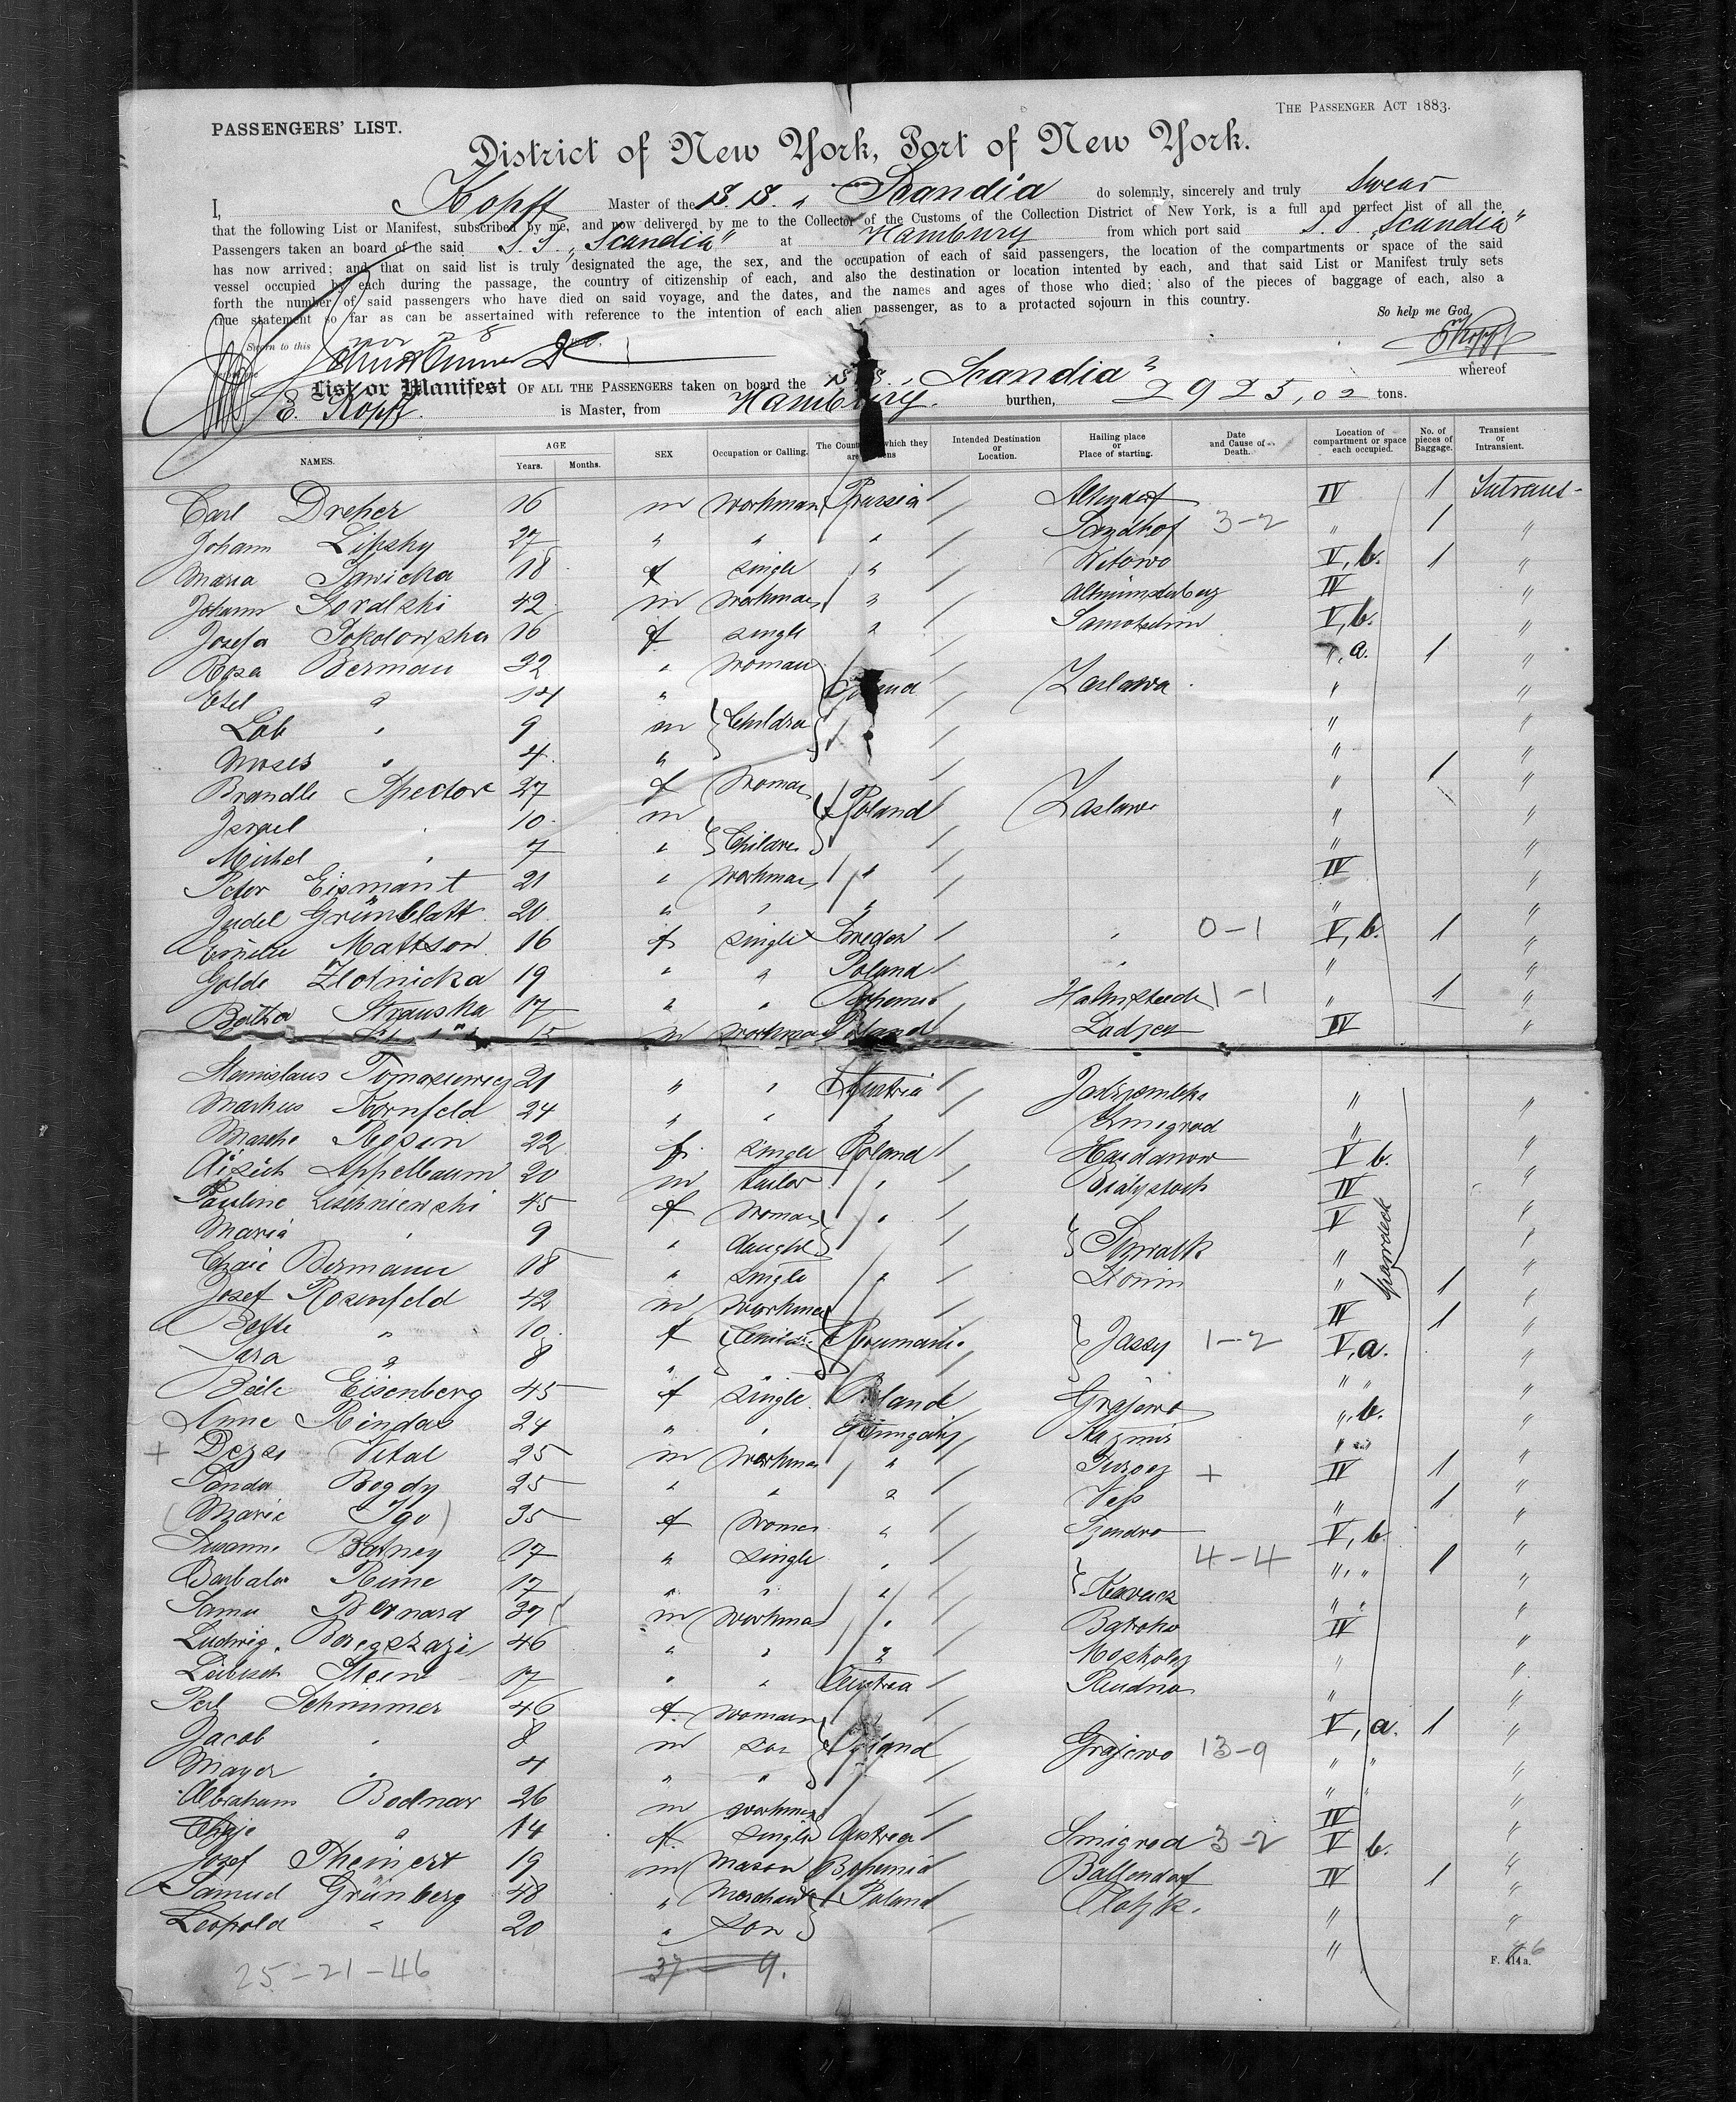 PASSENGERS' LIST.
THE PASSENGER ACT 1883.
District of New York, Port of New York.
I, Kopff Master of the S. S. „ Scandia do solemnly, sincerely and truly swear
that the following List or Manifest, subscribed by me, and now delivered by me to the Collector of the Customs of the Collection District of New York, is a full and perfect list of all the
Passengers taken an board of the said S. S. „Scandia" at Hamburg from which port said S. S. „Scandia"
has now arrived; and that on said list is truly designated the age, the sex, and the occupation of each of said passengers, the location of the compartments or space of the said
vessel occupied by each during the passage, the country of citizenship of each, and also the destination or location intented by each, and that said List or Manifest truly sets
forth the number of said passengers who have died on said voyage, and the dates, and the names and ages of those who died; also of the pieces of baggage of each, also a
true statement so far as can be assertained with reference to the intention of each alien passenger, as to a protacted sojourn in this country.
So help me God
Sworn to this nov 28
Kopff
List or Manifest OF ALL THE PASSENGERS taken on board the S. S. „Scandia" whereof
E. Kopff. is Master, from Hamburg. burthen, 2925,02 tons.
NAMES. AGE Years. Months. SEX Occupation or Calling. The Country of which they are citizens Intended Destination or Location. Hailing place or Place of starting. Date and Cause of Death. Location of compartment or space each occupied. No. of pieces of Baggage. Transient or Intransient.
Carl Dreher 16 m workman Prussia IV 1 Intrans-
Johann Lipsky 27 " " " Sandhof 3-2 " 1 "
Maria Sawicka 18 f single " Witowo V, b. 1 "
Johann Goralski 42 m workman " Altmünsterberg IV "
Josefa Sokolowska 16 f single " Samotschin V, b. "
Rosa Berman 32 " woman Poland Zaslawa ", a. 1 "
Etel " 14 " " "
Löb " 9 m Children " "
Moses " 4 " " "
Brandle Spector 27 f Woman Poland Zaslawe " 1 "
Israel 10 m Children " "
Michel " 7 " " "
Peter Eismant 21 " workman " IV "
Judel Grünblatt 20 " " " " "
Mattson 16 f single Sweden " 0-1 V, b. 1 "
Golde Zlotnicka 19 " " Poland " " "
Bertha Strauska 17 " " Bohemia Halmstad 1-1 " 1 "
15 m workman Poland IV "
Stanislaus Tomaszewicz 21 " " Austria " "
Markus Kornfeld 24 " " " Zmigrod " "
Mascha Rosen 22 f. single Poland V b. "
Appelbaum 20 m tailor " Bialystock IV "
Pauline Lischniewski 45 f Woman " Suwalk V "
Maria " 9 " daughter " "
Chaie Bermann 18 " single " Slonim " 1 "
Josef Rosenfeld 42 m workman Roumania Jassy 1-2 IV 1 "
10 f Children V, a. "
Sara " 8 " " " "
Beile Eisenberg 45 f single Poland Grajewo ", b. "
Anne Rindas 24 " " Hungary " "
+ Vital 25 m workman " + IV 1 "
Bogdy 25 " " " " 1 "
(Marie Igo) 35 f Woman " Szendro V, b. "
Susanne 17 " single " 4-4 " " 1 "
Barbala Rime 17 " " " " " "
Samu Bernard 37 m workman " IV "
Ludwig. Beregszazi 46 " " " " "
Leibisch Stein 17 " " Austria Rudna " "
Perl Schimmer 46 f. woman Poland Grajewo 13-9 V, a. 1 "
Jacob " 8 m son " " "
Mayer " 4 " " " " "
Abraham Bodnar 26 m workman IV "
Chaje " 14 f. single Austria Smigrod 3-2 V b. "
Josef Theinert 19 m Mason Bohemia IV 1 "
Samuel Grünberg 48 " Merchant Poland Plotzk. " "
Leopold " 20 " son " "
25-21-46
37 - 9.
46
F. 414a.